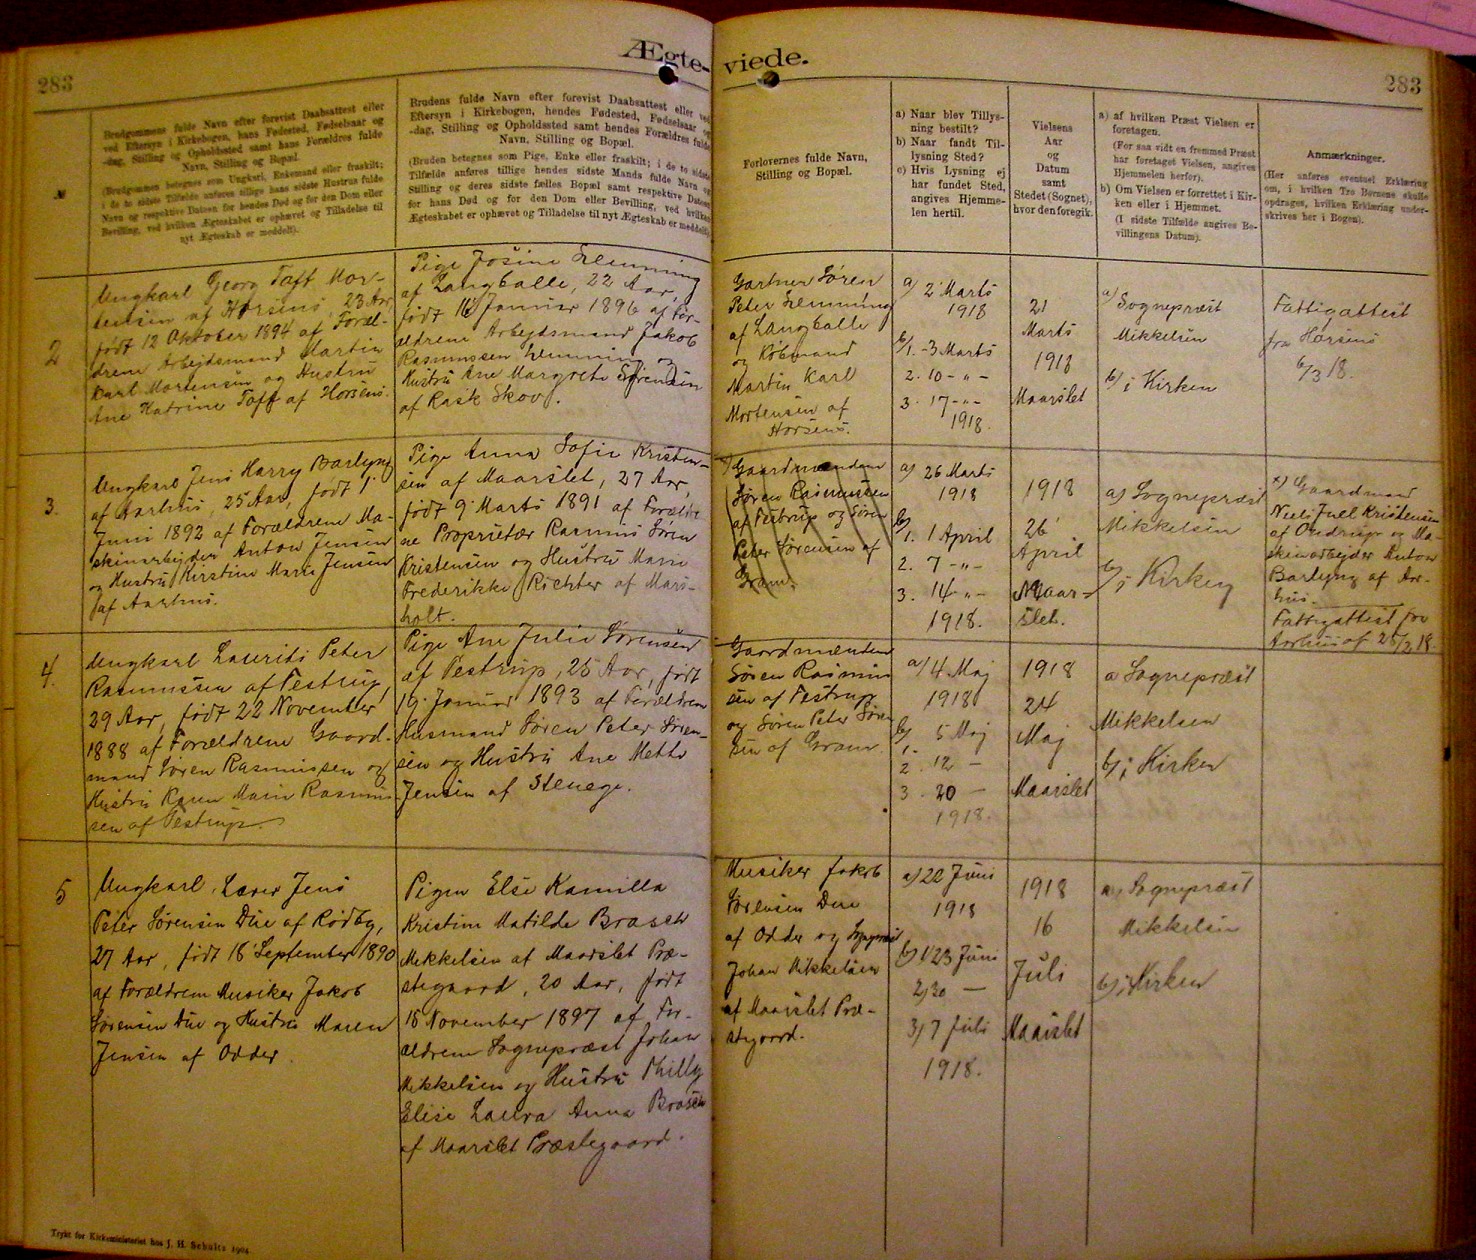 283
Ægte-
viede.
283
№
Brudgommens fulde Navn efter forevist Daabsattest eller
ved Eftersyn i Kirkebogen, hans Fødested, Fødselsaar og
-dag, Stilling og Opholdssted samt hans Forældres fulde
Navn, Stilling og Bopæl.
(Brudgommen betegnes som Ungkarl, Enkemand eller fraskilt;
i de to sidste Tilfælde anføres tillige hans sidste Hustrus fulde
Navn og respektive Datoen for hendes Død og for den Dom eller
Bevilling, ved hvilken Ægteskabet er ophævet og Tilladelse til
nyt Ægteskab er meddelt).
Brudens fulde Navn efter forevist Daabsattest eller ved
Eftersyn i Kirkebogen, hendes Fødested, Fødselsaar og
-dag, Stilling og Opholdssted samt hendes Forældres fulde
Navn, Stilling og Bopæl.
(Bruden betegnes som Pige, Enke eller fraskilt; i de to sidste
Tilfælde anføres tillige hendes sidste Mands fulde Navn og
Stilling og deres sidste fælles Bopæl samt respektive Datoen
for hans Død og for den Dom eller Bevilling, ved hvilken
Ægteskabet er ophævet og Tilladelse til nyt Ægteskab er meddelt).
Forlovernes fulde Navn,
Stilling og Bopæl.
a) Naar blev Tillys-
ning bestilt?
b) Naar fandt Til-
lysning Sted?
c) Hvis Lysning ej
har fundet Sted,
angives Hjemme-
len hertil.
Vielsens
Aar
og
Datum
samt
Stedet (Sognet),
hvor den foregik.
a) af hvilken Præst Vielsen er
foretagen.
(For saa vidt en fremmed Præst
har foretaget Vielsen, angives
Hjemmelen herfor).
b) Om Vielsen er forrettet i Kir-
ken eller i Hjemmet.
(I sidste Tilfælde angives Be-
villingens Datum).
Anmærkninger.
(Her anføres eventuel Erklæring
om, i hvilken Tro Børnene skulle
opdrages, hvilken Erklæring under-
skrives her i Bogen).
2
Ungkarl Georg Taff Mor-
tensen af Horsens, 23 Aar
født 12 Oktober 1894 af Foræl-
drene Arbejdsmand Martin
Karl Mortensen og Hustru
Ane Katrine Taff af Horsens.
Pige Josine Slemming
af Langballe, 22 Aar,
født 16 Januar 1896 af For-
ældrene Arbejdsmand Jakob
Rasmussen Slemming og
Hustru Ane Margrete Sørensen
af Rask Skov.
Gartner Søren
Peter Slemming
af Langballe
og Købmand
Martin Karl
Mortensen af
Horsens.
a) 2 Marts
1918
b) 1. - 3 Marts
2. 10 - " -
3. 17 - " -
1918.
21
Marts
1918
Maarslet
a) Sognepræst
Mikkelsen
b) i Kirken
Fattigattest
fra Horsens
6/3 18.
3.
Ungkarl Jens Harry Barlyng
af Aarhus, 25 Aar, født 1
Juni 1892 af Forældrene Ma-
skinarbejder Anton Jensen
og Hustru Kirstine Marie Jensen
af Aarhus.
Pige Anna Sofie Kristen-
sen af Maarslet, 27 Aar,
født 9 Marts 1891 af Foræld-
ne Proprietær Rasmus Søren
Kristensen og Hustru Marie
Frederikke Richter af Mars-
holt.
x) Gaardmændene
Søren Rasmussen
af Pestrup og Søren
Peter Sørensen af
Gram.
a) 26 Marts
1918
b) 1. 1 April
2. 7 - " -
3. 14 - " -
1918.
1918
26
April
Maar-
slet.
a) Sognepræst
Mikkelsen
b) i Kirken
x) Gaardmand
Niels Juel Kristensen
af Oudrup og Ma-
skinarbejder Anton
Barlyng af Aar-
hus.
Fattigattest fra
Aarhus af 25/3 18.
4.
Ungkarl Laurits Peter
Rasmussen af Pestrup,
29 Aar, født 22 November
1888 af Forældrene Gaard-
mand Søren Rasmussen og
Hustru Karen Marie Rasmus-
sen af Pestrup.
Pige Ane Julie Sørensen
af Pestrup, 25 Aar, født
19 Januar 1893 af Forældrene
Husmand Søren Peter Søren-
sen og Hustru Ane Mette
Jensen af Stenege.
Gaardmændene
Søren Rasmus-
sen af Pestrup
og Søren Peter Søren
sen af Gram
a) 4 Maj
1918
b) 1. 5 Maj
2. 12 -
3. 20 -
1918.
1918
24
Maj
Maarslet
a Sognepræst
Mikkelsen
b) i Kirken
5
Ungkarl, Lærer Jens
Peter Sørensen Due af Rødby,
27 Aar, født 18 September 1890
af Forældrene Musiker Jakob
Sørensen Due og Hustru Maren
Jensen af Odder.
Pigen Else Kamilla
Kristine Matilde Brasch
Mikkelsen af Maarslet Præ-
stegaard, 20 Aar, født
18 November 1897 af For-
ældrene Sognepræst Johan
Mikkelsen og Hustru Thilly
Elise Laura Anna Brasch
af Maarslet Præstegaard.
Musiker Jakob
Sørensen Due
af Odder og Sognepræst
Johan Mikkelsen
af Maarslet Præ-
stegaard.
a) 22 Juni
1918
b) 1/23 Juni
2/30 -
3/7 Juli
1918.
1918
16
Juli
Maarslet
a) Sognepræst
Mikkelsen
b) i Kirken
Trykt for Kirkeministeriet hos J. H. Schultz 1904